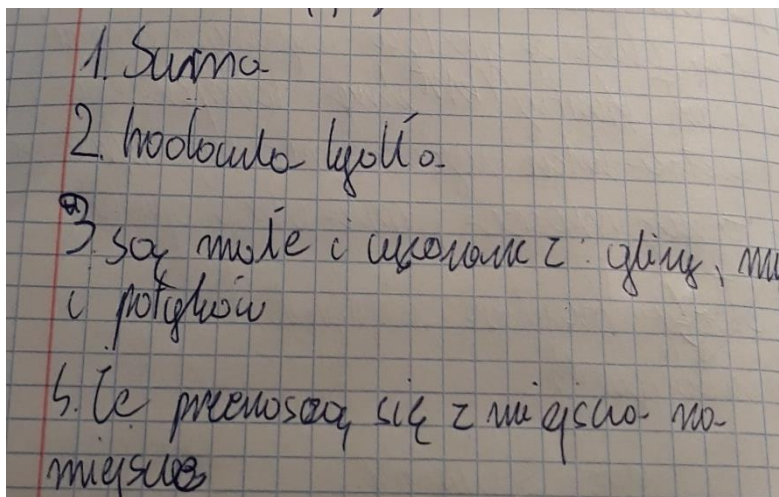 1. Surma
2. hodowla bydła
3. są małe i wykonane z: gliny,
i patyków
5. że przenoszą się z miejsca na
miejsce